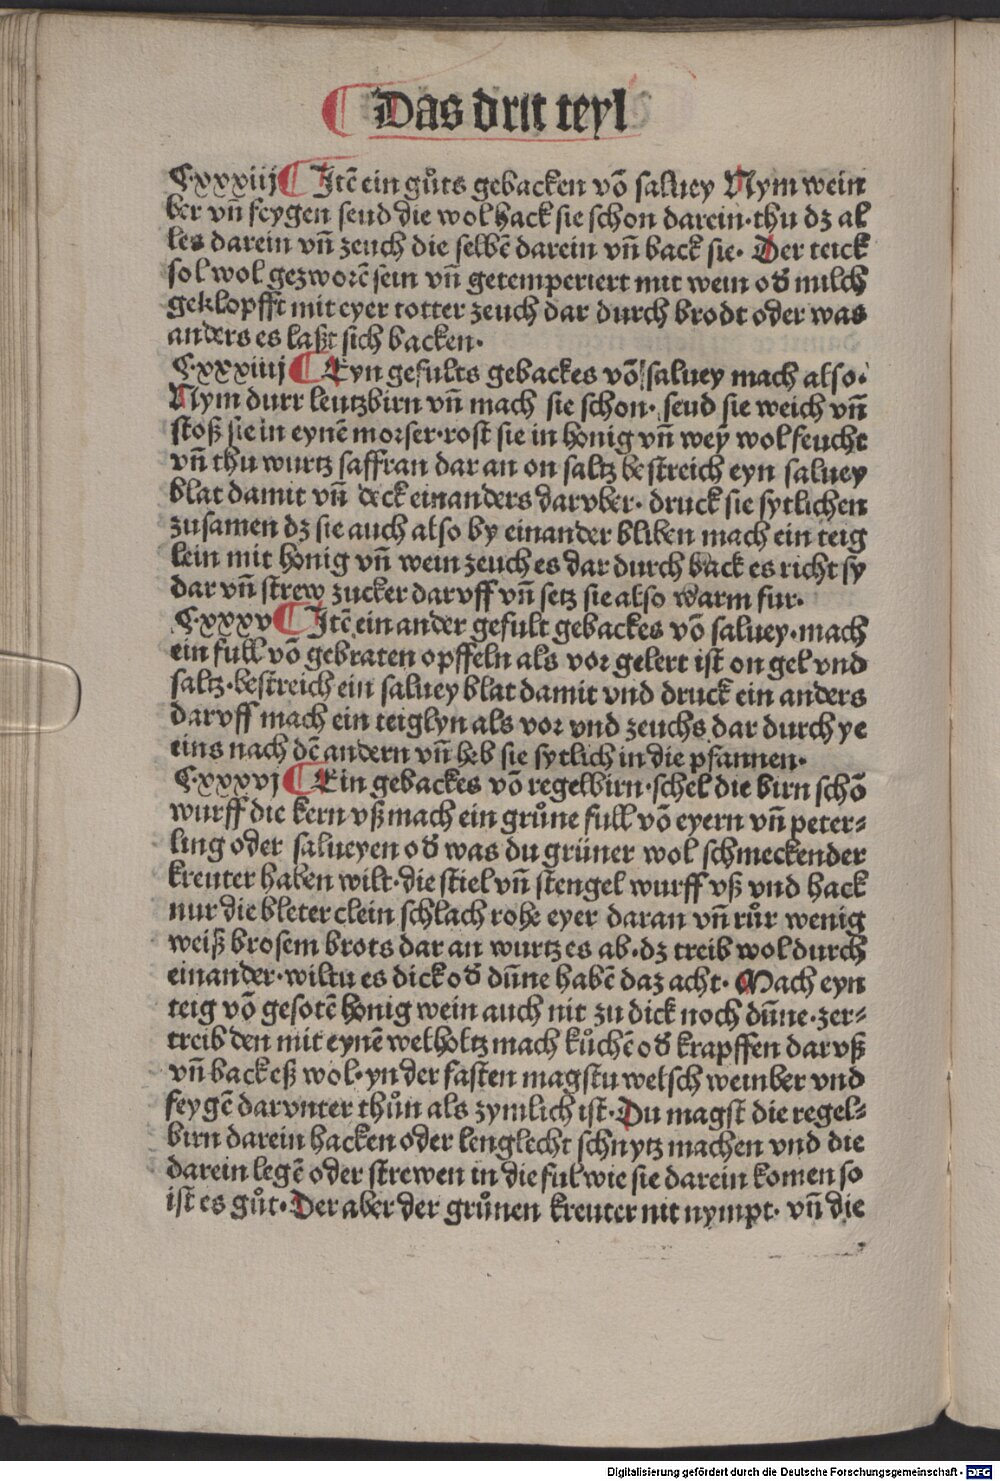 Das drit teyl
C·xxxiij Itē ein gůts gebacken võ saluey Nym wein
ber vñ feygen seud die wol hack sie schon darein·thu dz al
les darein vñ zeuch die selbē darein vñ back sie· Der teick
sol wol gezworē sein vñ getemperiert mit wein od̕ milch
geklopfft mit eyer totter zeuch dar durch brodt oder was
anders es laßt sich backen·
C·xxxiiij Eyn gefults gebackes võ saluey mach also·
Nym durr leutzbirn vñ mach sie schon· seud sie weich vñ
stoß sie in eynē morser·rost sie in honig vñ wey̅ wol feucht
vñ thu wurtz saffran dar an on saltz bestreich eyn saluey
blat damit vñ deck einanders darvber· druck sie sytlichen
zusamen dz sie auch also by einander bliben mach ein teig
lein mit honig vñ wein zeuch es dar durch back es richt sy
dar vñ strew zucker darvff vñ setz sie also warm fur·
C·xxxv Itē ein ander gefult gebackes võ saluey·mach
ein full võ gebraten opffeln als vor gelert ist on gel vnd
saltz·bestreich ein saluey blat damit vnd druck ein anders
darvff mach ein teiglyn als vor vnd zeuchs dar durch ye
eins nach dē andern vñ heb sie sytlich in die pfannen·
C·xxxvj Ein gebackes võ regelbirn·schel die birn schō
wurff die kern vß mach ein grůne full võ eyern vñ peter-
ling oder salueyen od̕ was du grüner wol schmeckender
kreuter haben wilt·die stiel vñ stengel wurff vß vnd hack
nur die bleter clein schlach rohe eyer daran vñ růr wenig
weiß brosem brots dar an wurtz es ab·dz treib wol durch
einander·wiltu es dick od̕ dūne habē daz acht· Mach eyn
teig võ gesotē honig wein auch nit zu dick noch dūne·zer-
treib den mit eynē welholtz mach kůchē od̕ krapffen darvß
vñ back eß wol·yn der fasten magstu welsch weinber vnd
feygē darvnter thůn als zymlich ist·Du magst die regel-
birn darein hacken oder lenglecht schnytz machen vnd die
darein legē oder strewen in die ful wie sie darein komen so
ist es gůt·Der aber der grůnen kreuter nit nympt· vñ die
Digitalisierung gefördert durch die Deutsche Forschungsgemeinschaft - DFG